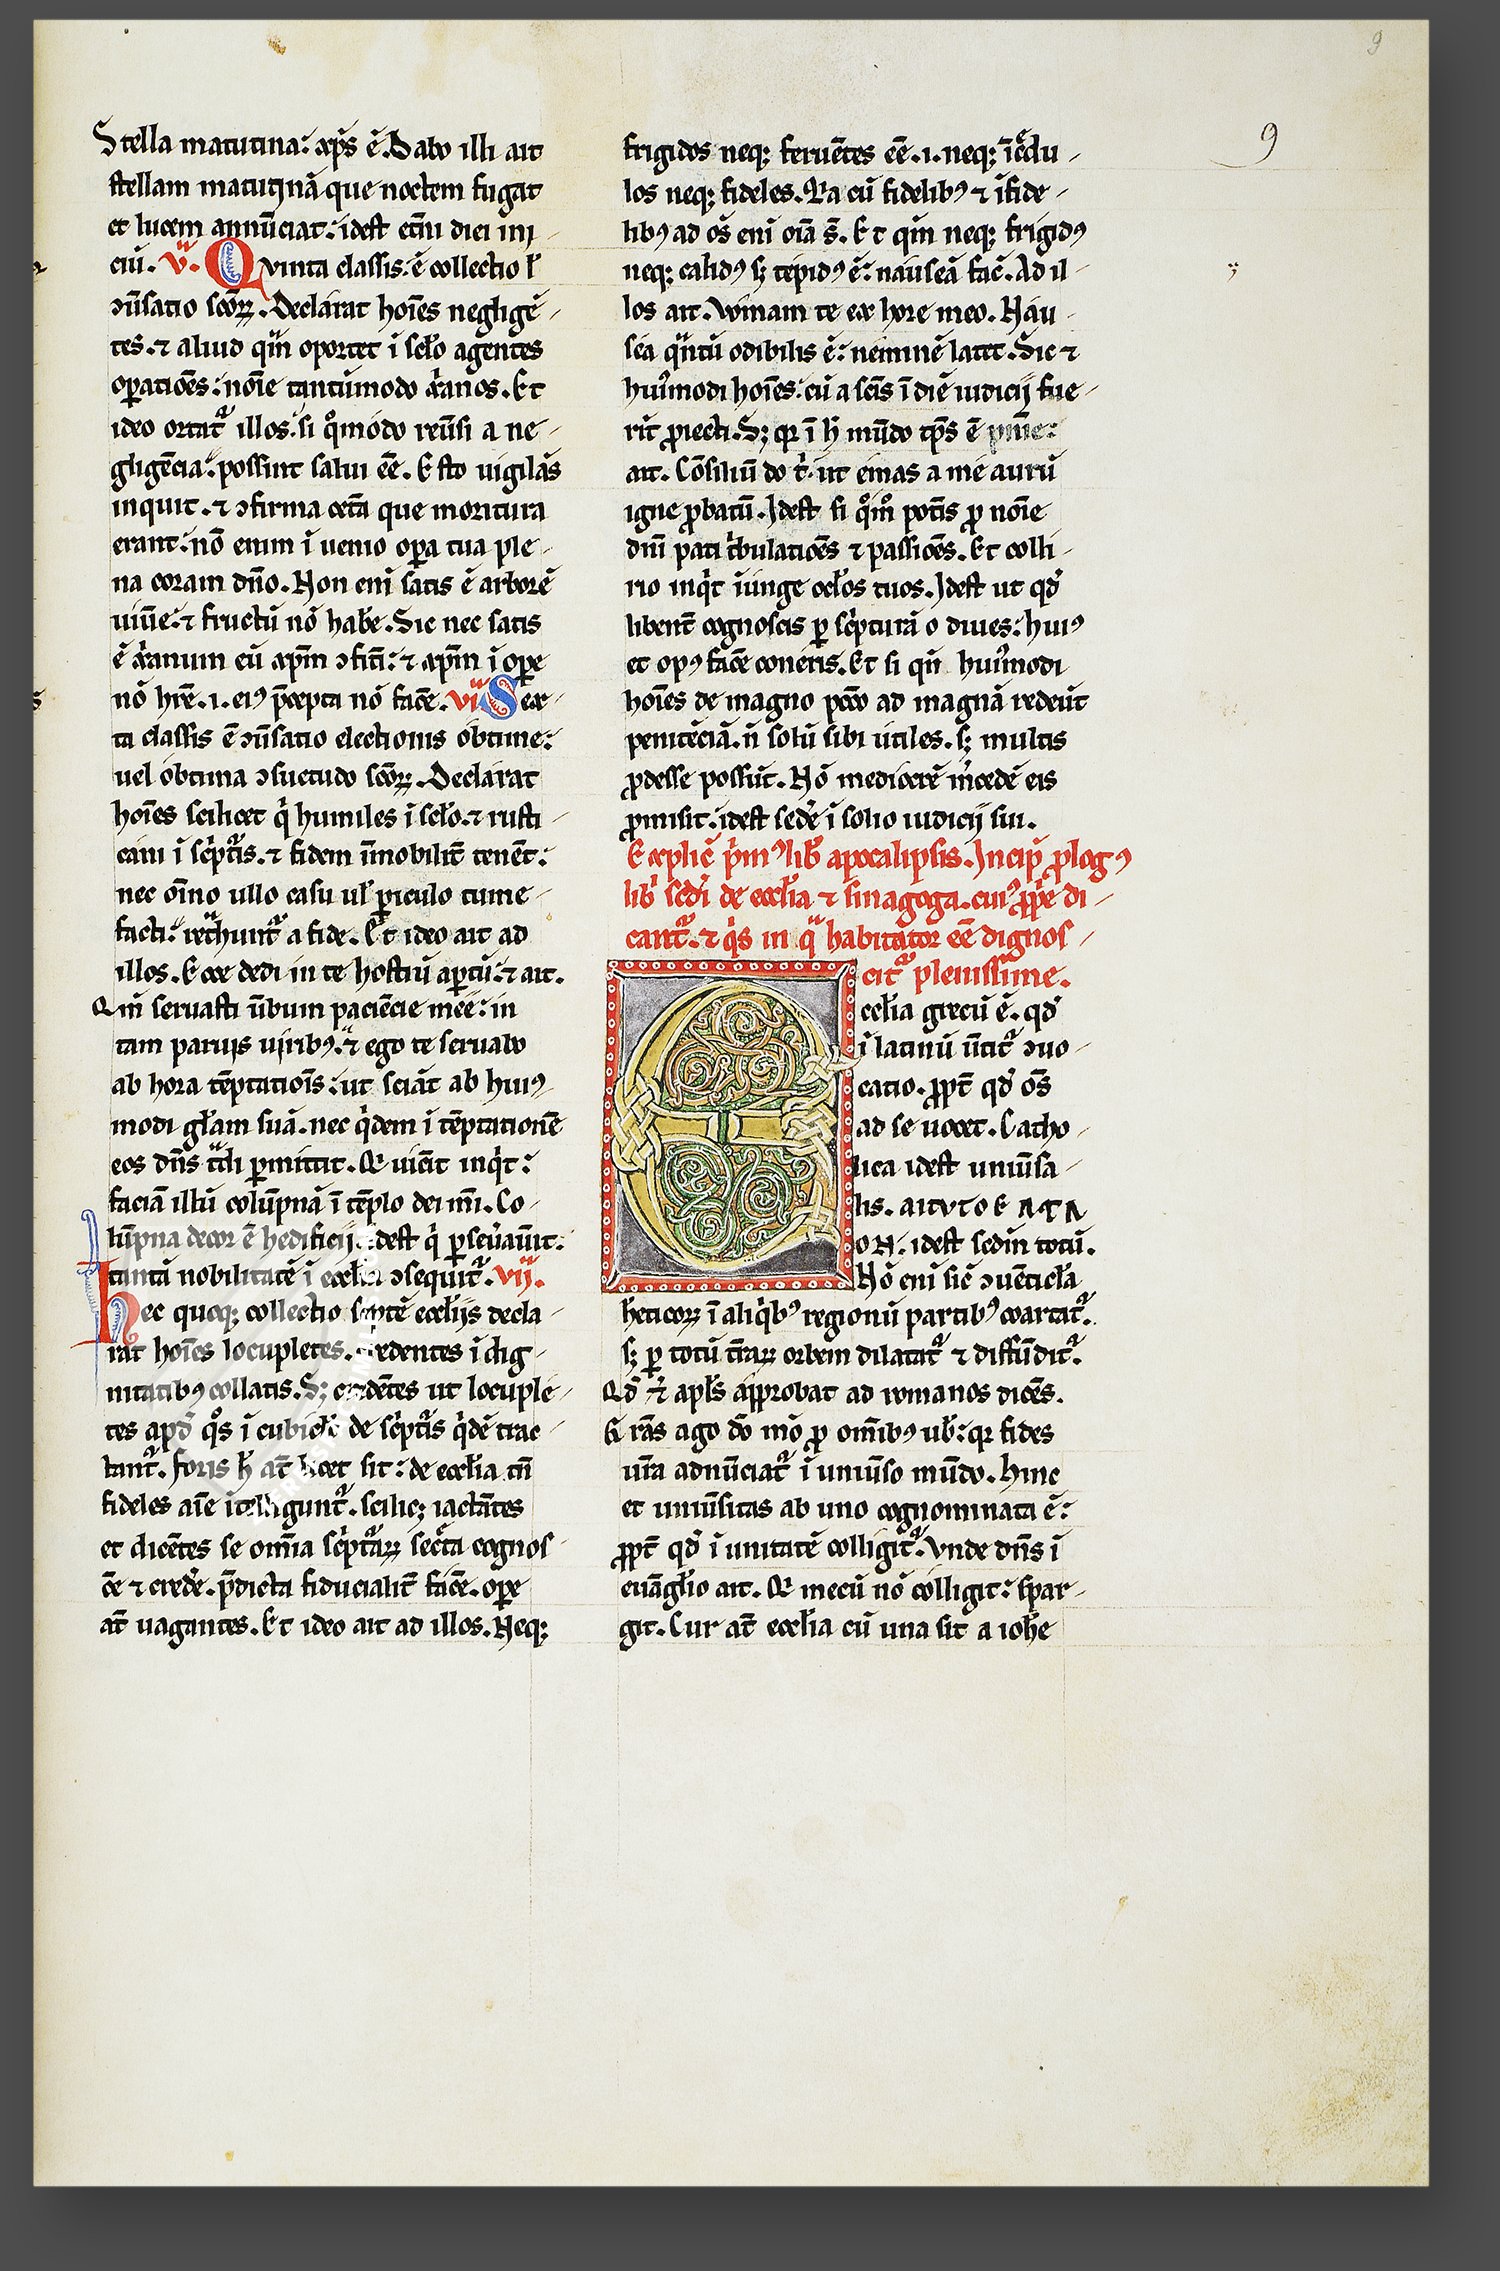 9
9
Stella matutina: xp̄s ē. Dabo illi ait
stellam matutinā que noctem fugat
et lucem annūciat: idest etn̄i diei ini
ciū. v. Quinta classis: ē collectio l̄
ↄūsatio sc̄oꝝ. Declarat hoīes negligē
tes. ⁊ aliud qm̄ oportet ī sc̄lo agentes
oꝑatiōes: noīe tantūmodo xp̄ianos. Et
ideo ortat̉ illos: si qͦmodo reūsi a ne
gligēcia: possint salui eē. Esto uigilās
inquit. ⁊ ↄfirma cet̄a que moritura
erant: nō enim īuenio oꝑa tua ple
na coram dn̄o. Non enī satis ē arborē
uiūe: ⁊ fructū nō hab̄e. Sic nec satis
ē xp̄ianum eū xp̄m ↄfit̄i: ⁊ xp̄m ī oꝑe
nō hr̄e. i. eiꝰ p̄cepta nō fac̄e. vi. Sex
ta classis ē ↄūsatio electionis obtime:
uel obtima ↄsuetudo sc̄oꝝ. Declarat
hoīes scilicet qͥ humiles ī sc̄lo. ⁊ rusti
cani ī sc̄pturis. ⁊ fidem īmobilit̄ tenēt:
nec oīno ullo casu ul̄ ꝑiculo tume
facti: ret̄hunt̉ a fide. Et ideo ait ad
illos. Ecce dedi in te hostiū aꝑtū: ⁊ ait.
Qm̄ seruasti ūbum paciēcie mee: in
tam paruis uiribꝰ: ⁊ ego te seruabo
ab hora tēptatiōis: ut sciāt ab huiꝰ
modi gl̄am suā. nec qͥdem ī tēptationē
eos dn̄s t̄hi ꝑmittit. Qͥ uic̄it inqͥt:
faciā illū colūpnā ī tēplo dei mī. Co
lūpna decor ē hedificij. idest qͥ ꝑseūaūit:
tantā nobilitatē ī eccl̄ia ↄsequit̉. vij.
hec quoqꝫ collectio septē eccl̄ijs decla
rat hoīes locupletes. credentes ī dig
nitatibꝰ collatis. Sꝫ credētes ut locuple
tes apd̄ qͦs ī cubicl̄o de sc̄pturis qͥdē trac
tant̉. foris h̄ at̄ licet sit: de eccl̄ia tn̄
fideles aīe ītelligunt̉. scilicꝫ iactātes
et dicētes se omīa sc̄pturaꝝ sec̄ta cognos
c̄e ⁊ cred̄e. p̄dicta fiducialit̄ fac̄e. oꝑe
at̄ uagantes. Et ideo ait ad illos. Neqꝫ
frigidos neqꝫ feruētes eē. i. neqꝫ īc̄edu
los neqꝫ fideles. Na cū fidelibꝰ ⁊ īfide
libꝰ ad os̄ enī oīa s̄. Et qm̄ neqꝫ frigidꝰ
neqꝫ calidꝰ sꝫ tepidꝰ ē: nauseā fac̄. Ad il
los ait. Vomam te ex hore meo. Nau
sea qͣntū odibilis ē: neminē latet. Sic ⁊
huiꝰmodi hoīes: cū a sc̄is ī diē iudicij fue
rīt ꝓiecti. Sꝫ qꝛ ī h̄ mūdo tp̄s ē pn̄ie:
ait. Cōsiliū do tͥ: ut emas a me aurū
igne ꝓbatū. Idest si qͦmͦ pot̄is ꝓ noīe
dn̄i pati tͥbulatiōes ⁊ passiōes. Et colli
rio inqͥt īunge ocl̄os tuos. Idest ut qd̄
libent̄ cognoscis ꝑ sc̄pturā o diues: huiꝰ
et opꝰ fac̄e coneris. Et si qn̄ huiꝰmodi
hoīes de magno pcc̄o ad magnā redeūt
penitēciā. n̄ solū sibi utiles. sꝫ multis
ꝓdesse possūt. Nō mediocrē m̄cedē eis
ꝓmisit. idest sed̄e ī solio iudicij sui.
Explic̄ pͥmꝰ lib̄ apocalipsis. Incip̄ ꝓlogꝰ
lib̄i sc̄di de eccl̄ia ⁊ sinagoga. cuiꝰ ꝓp̄e di
cant̉. ⁊ qͥs in qͣ habitator eē dignos
cit̉ plenissime.
Eccl̄ia grecū ē. qd̄
ī latinū ūtit̉ ↄuo
catio. ꝓpt̄ qd̄ om̄s
ad se uocet. Catho
lica idest uniūsa
lis. aituto k a t a
oN. idest sedm̄ totū.
Nō enī sic̄ ↄuēticl̄a
h̄eticoꝝ ī aliqͥbꝰ regionū partibꝰ coartat̉.
sꝫ ꝑ totū t̄raꝝ orbem dilatat̉ ⁊ diffūdit̉.
Qd̄ ⁊ apl̄s approbat ad romanos dicēs.
Grās ago dō mō ꝓ omībꝰ ub̄: qꝛ fides
ura adnūciat̉ ī uniūso mūdo. Hinc
et uniūsitas ab uno cognominata ē:
ꝓpt̄ qd̄ ī unitatē colligit̉. Vnde dn̄s ī
euāgl̄io ait. Qͥ mecū nō colligit: spar
git. Cur at̄ eccl̄ia cū una sit a ioh̄e